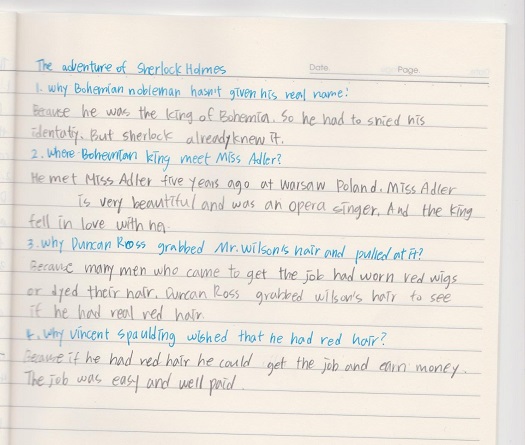 The adventure of Sherlock Holmes
Date Page
1. why Bohemian nobleman hasn't given his real name?
Because he was the king of Bohemia. So he had to snied his
identaty. But sherlock already knew it.
2. where Bohemian king meet Miss Adler?
He met Miss Adler five years ago at warsaw Poland. Miss Adler
is very beautiful and was an opera singer. And the king
fell in love with her.
3. why Duncan Ross grabbed Mr. Wilson's hair and pulled at it?
Because many men who came to get the job had worn red wigs
or dyed their hair. Duncan Ross grabbed wilson's hair to see
if he had real red hair.
4. why Vincent spaulding wished that he had red hair?
Because if he had red hair he could get the job and earn money.
The job was easy and well paid.